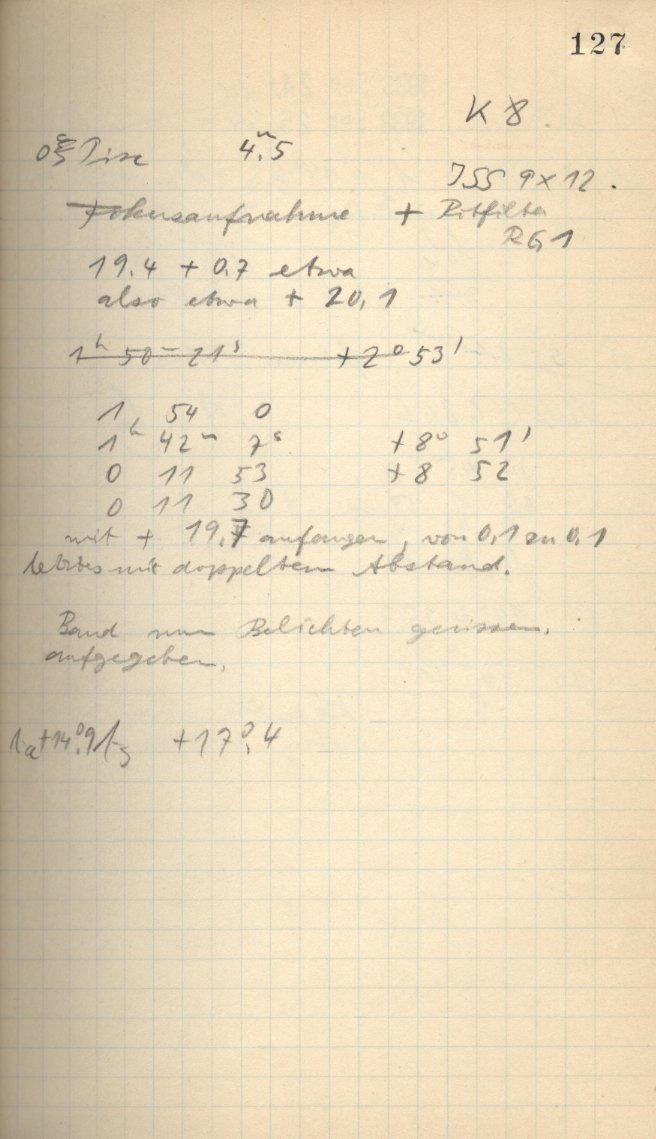 127
K 8
Pisc 4.ᵐ5
ISS 9 x 12.
Fokusaufnahme + Rotfilter
RG1
19.4 + 0.7 etwa
also etwa + 20,1
1ʰ 50ᵐ 21ˢ +2° 53'
1 54 0
1ʰ 42ᵐ 7ˢ +8° 51'
0 11 53 +8 52
0 11 30
mit + 19,7 anfangen, von 0,1 zu 0,1
letztes mit doppeltem Abstand.
Band zum Belichten gerissen,
aufgegeben,
+14°,9 +17°,4